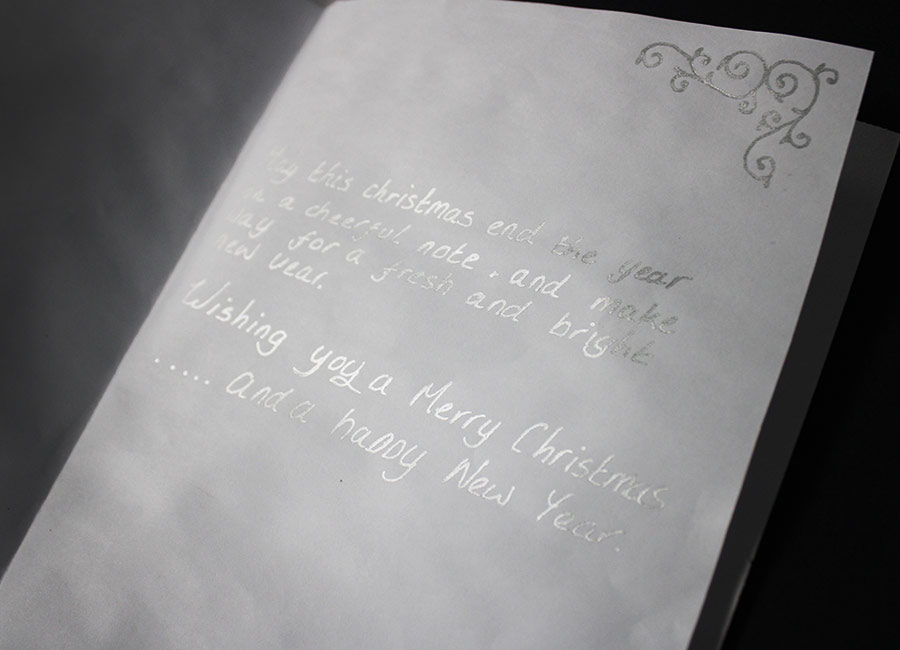 May this christmas end the year
on a cheerful note, and make
way for a fresh and bright
new year.
Wishing you a Merry Christmas
..... and a happy New Year.